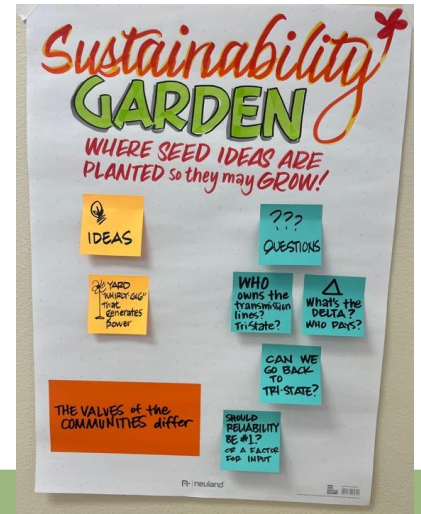 Sustainability
GARDEN
WHERE SEED IDEAS ARE
PLANTED so they may GROW!
IDEAS
YARD
"WHIRLY-GIG"
that
generates
power
THE VALUES of the
COMMUNITIES differ
???
QUESTIONS
WHO
owns the
transmission
lines?
TriState?
What's the
DELTA?
WHO PAYS?
CAN WE
GO BACK
TO
TRI-STATE?
SHOULD
RELIABILITY
BE #1?
OR A FACTOR
FOR INPUT
neuland